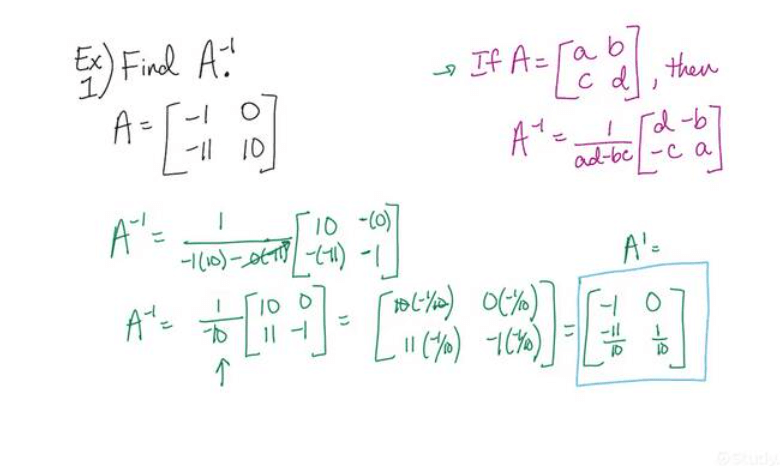 Ex 1) Find A⁻¹.
A = [-1 0; -11 10]
→ If A = [a b; c d], then
A⁻¹ = 1/(ad-bc) [d -b; -c a]
A⁻¹ = 1/(-1(10) - 0(-11)) [10 -(0); -(-11) -1]
A⁻¹ = 1/-10 [10 0; 11 -1] = [10(-1/10) 0(-1/10); 11(-1/10) -1(-1/10)] = [-1 0; -11/10 1/10]
A⁻¹ =